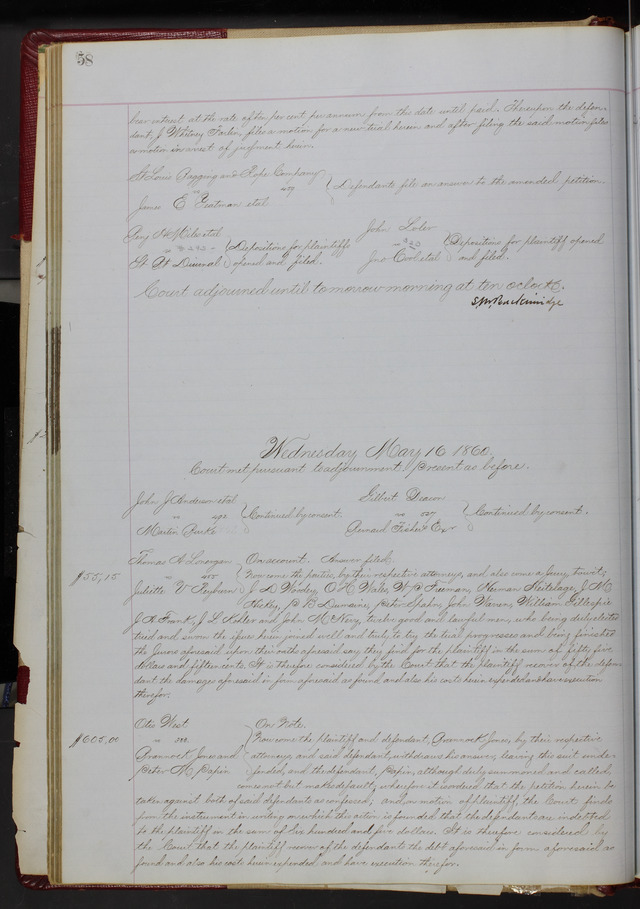 58
bear interest at the rate of ten per cent per annum from this date until paid. Thereupon the defen-
dant, J Whitney Farlin, files a motion for a new trial herein and after filing the said motion, files
a motion in arrest of judgment herein.
St Louis Bagging and Rope Company
vs 479 Defendants file an answer to the amended petition.
James E Yeatman etal
Benj H Miles etal John Loler
Depositions for plaintiff Depositions for plaintiff opened
opened and filed. Jno etal and filed.
Court adjourned until tomorrow morning at ten oclock.
S.M. Breckinridge
Wednesday May 16 1860.
Court met pursuant to adjournment. Present as before.
John J Anderson etal Gilbert
vs Continued by consent. vs 527 Continued by consent.
Martin Burke Bernard Fisher Exr
Thomas A Lonergan On account. Answer filed.
$55,15 vs 455 Now come the parties, by their respective attorneys, and also come a Jury, towit;
Juliette V J D Woodey, O H Wales, W P Freeman, Herman Heitelage, J M
Hickey, P B Dumaine, Peter Spahn, John Warren, William Gillespie
J A Frank, J L Kohler and John McNevy, twelve good and lawful men, who being duly elected
tried and sworn the issue herein joined well and truly to try, the trial progresses and being finished
the Jurors aforesaid upon their oath aforesaid say they find for the plaintiff in the sum of fifty five
dollars and fifteen cents. It is therefore considered by the Court that the plaintiff recover of the defen-
dant the damages aforesaid in form aforesaid as found and also his costs herein expended and have execution
therefor.
Otis West On Note.
$605,00 vs Now come the plaintiff and defendant, Jones, by their respective
Jones and attorneys, and said defendant, withdraws his answer, leaving this suit unde-
Peter M Papin fended, and the defendant, Papin, although duly summoned and called
comes not but makes default; wherefore it is ordered that the petition herein be
taken against both of said defendants as confessed; and, on motion of plaintiff, the Court finds
from the instrument in writing on which this action is founded that the defendants are indebted
to the plaintiff in the sum of Six hundred and five dollars. It is therefore considered by
the Court that the plaintiff recover of the defendants the debt aforesaid in form aforesaid as
found and also his costs herein expended and have execution therefor.